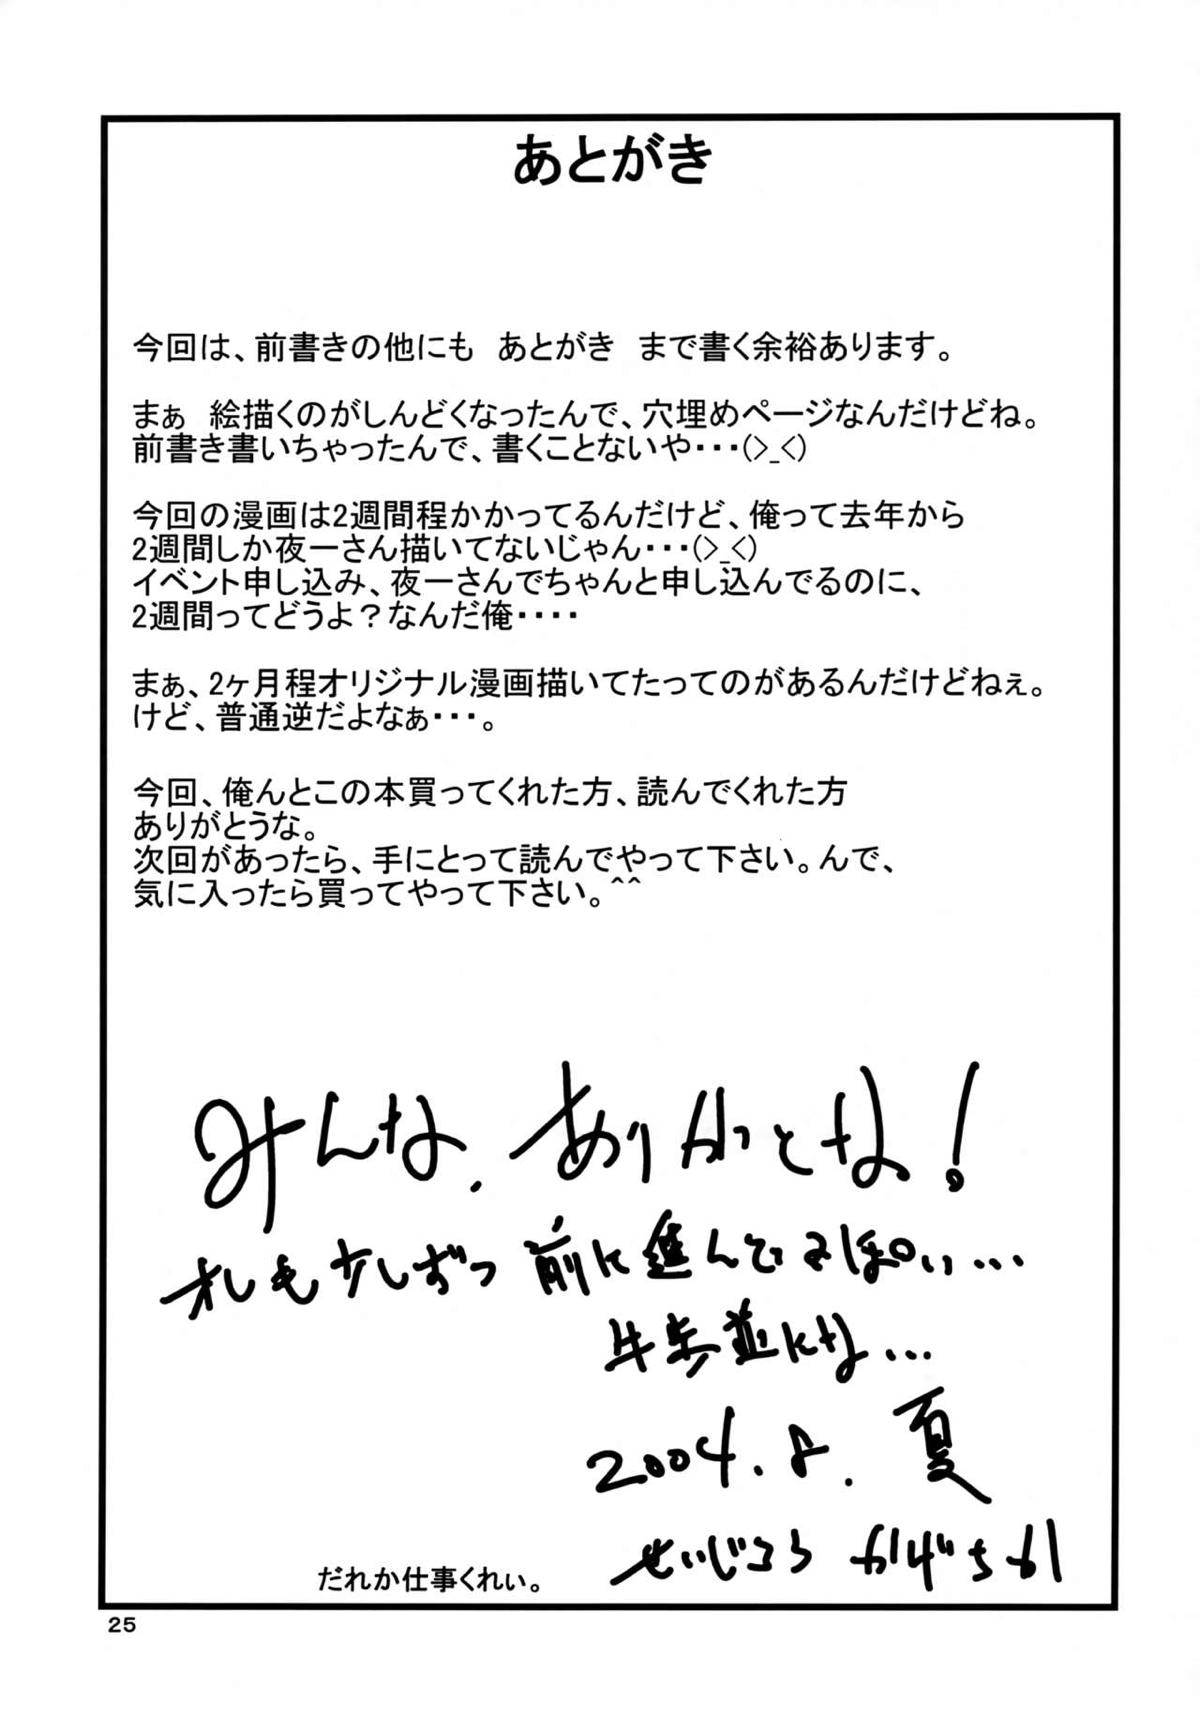 あとがき
今回は、前書きの他にも　あとがき　まで書く余裕あります。
まぁ　絵描くのがしんどくなったんで、穴埋めページなんだけどね。
前書き書いちゃったんで、書くことないや・・・(>_<)
今回の漫画は2週間程かかってるんだけど、俺って去年から
2週間しか夜一さん描いてないじゃん・・・(>_<)
イベント申し込み、夜一さんでちゃんと申し込んでるのに、
2週間ってどうよ？なんだ俺・・・・
まぁ、2ヶ月程オリジナル漫画描いてたってのがあるんだけどねぇ。
けど、普通逆だよなぁ・・・。
今回、俺んとこの本買ってくれた方、読んでくれた方
ありがとうな。
次回があったら、手にとって読んでやって下さい。んで、
気に入ったら買ってやって下さい。^^
みんな、ありがとな!
オレも少しずつ前に進んでるぽい...
牛歩並にな...
2004.8.夏
せいじろう かげちか
だれか仕事くれぃ。
25